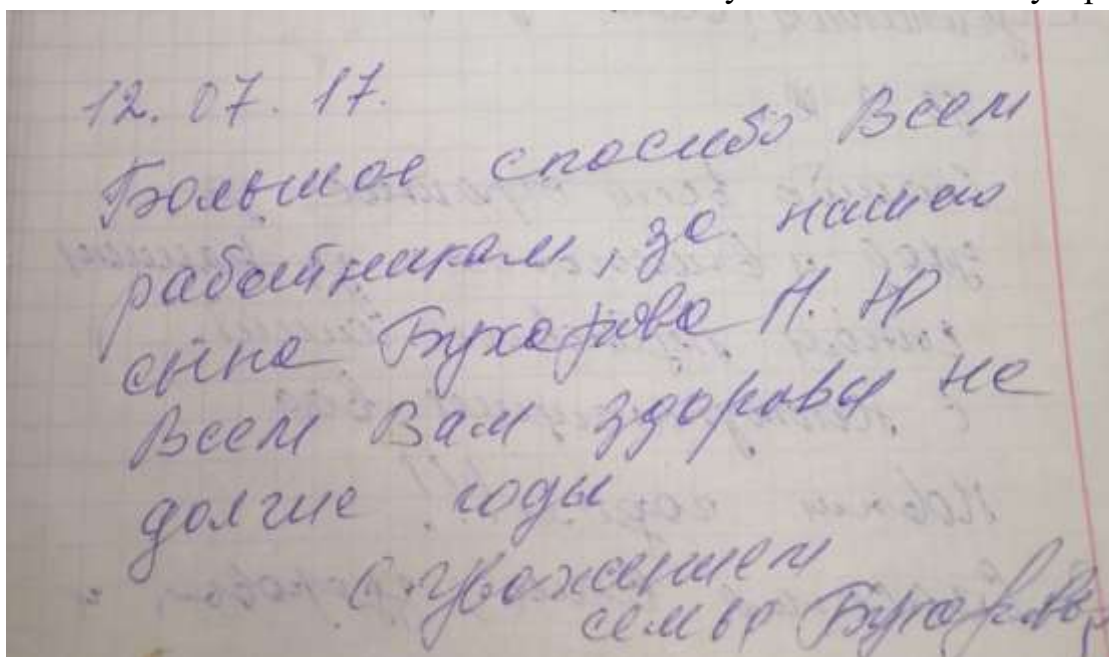 12.07.17.
Большое спасибо Всем
работникам, за нашего
сына Бухарова Н. Ю
Всем Вам здоровья на
долгие годы
С уважением
семья Бухаровы